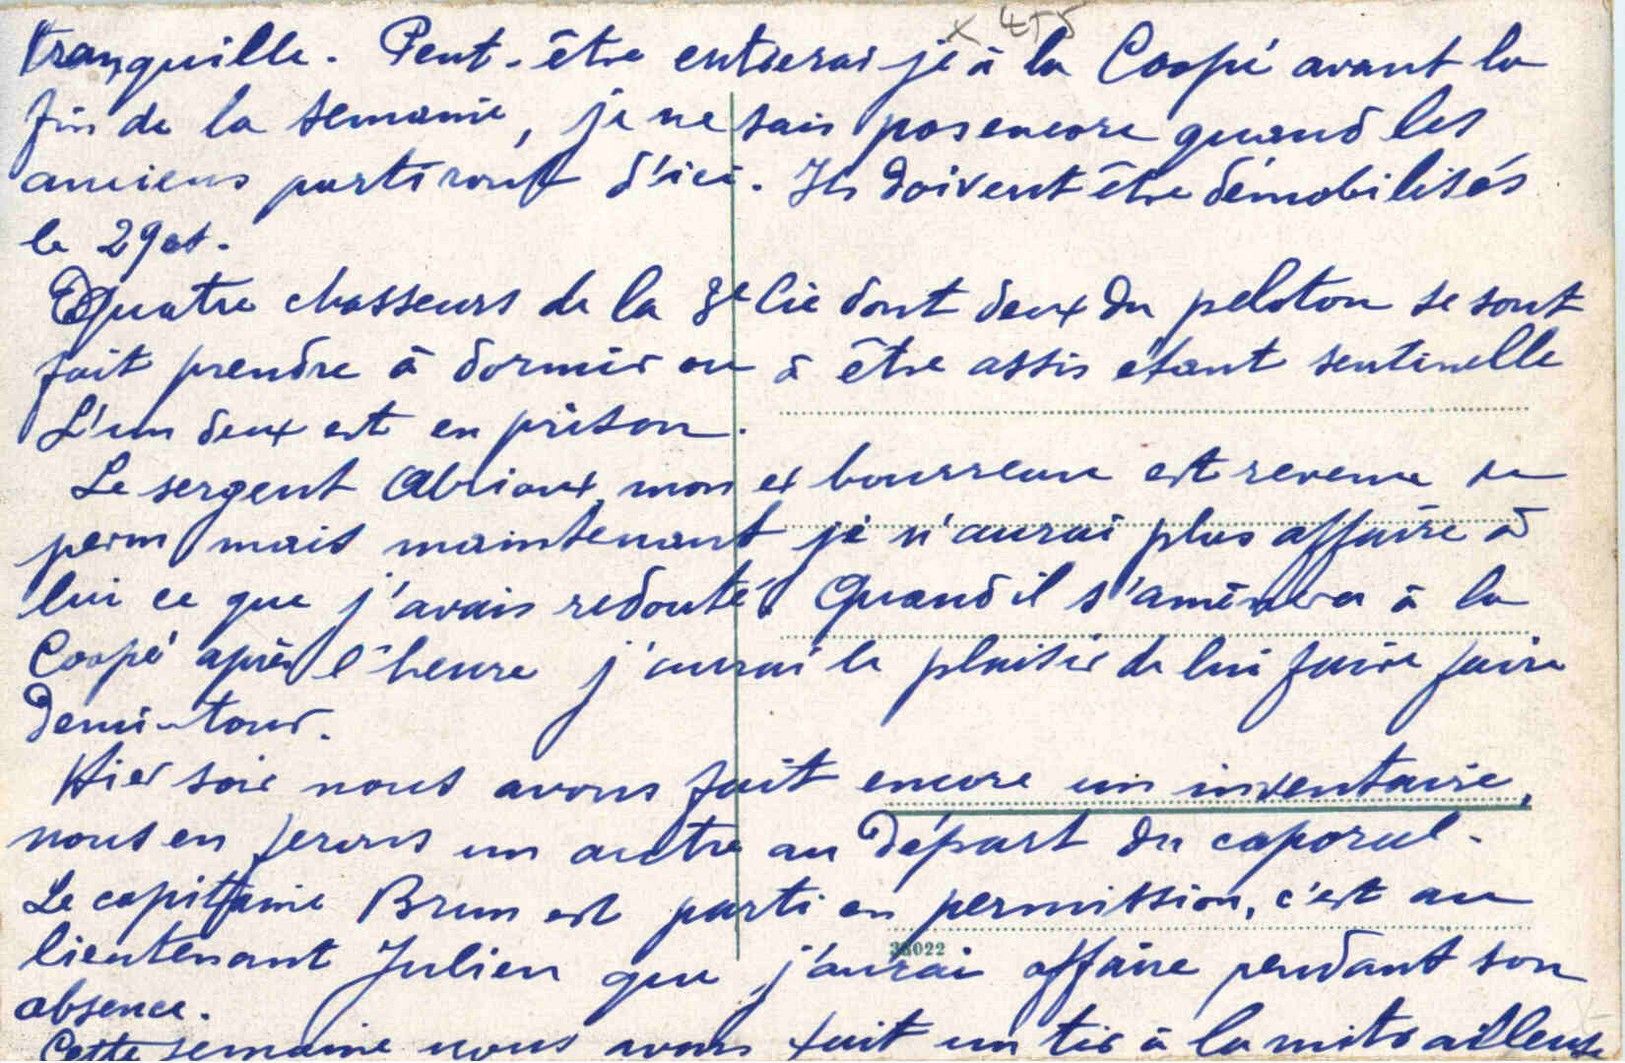 x 455
tranquille. Peut-être entrerai je à la Coopé avant la
fin de la semaine, je ne sais pas encore quand les
anciens partiront d'ici. Ils doivent être démobilisés
le 29 ct.
Quatre chasseurs de la 3e Cie dont deux du peloton se sont
fait prendre à dormir ou à être assis étant sentinelle
L'un deux est en prison.
Le sergent mon ex bourreau est revenu de
perm mais maintenant je n'aurai plus affaire à
lui ce que j'avais redouté. Quand il s'amènera à la
Coopé après l'heure j'aurai le plaisir de lui faire faire
demi-tour.
Hier soir nous avons fait encore un inventaire,
nous en ferons un autre au départ du caporal.
Le capitaine Brun est parti en permission, c'est au
lieutenant Julien que j'aurai affaire pendant son
absence.
Cette semaine nous avons fait un tir à la mitrailleuse